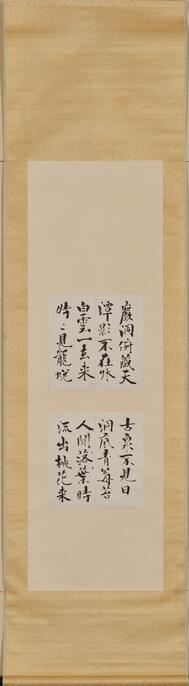 巖洞俯藏天
潭影不在水
白雲一去来
見龍蛻
古泉不見日
洞底青莓苔
人間落葉時
流出桃花来